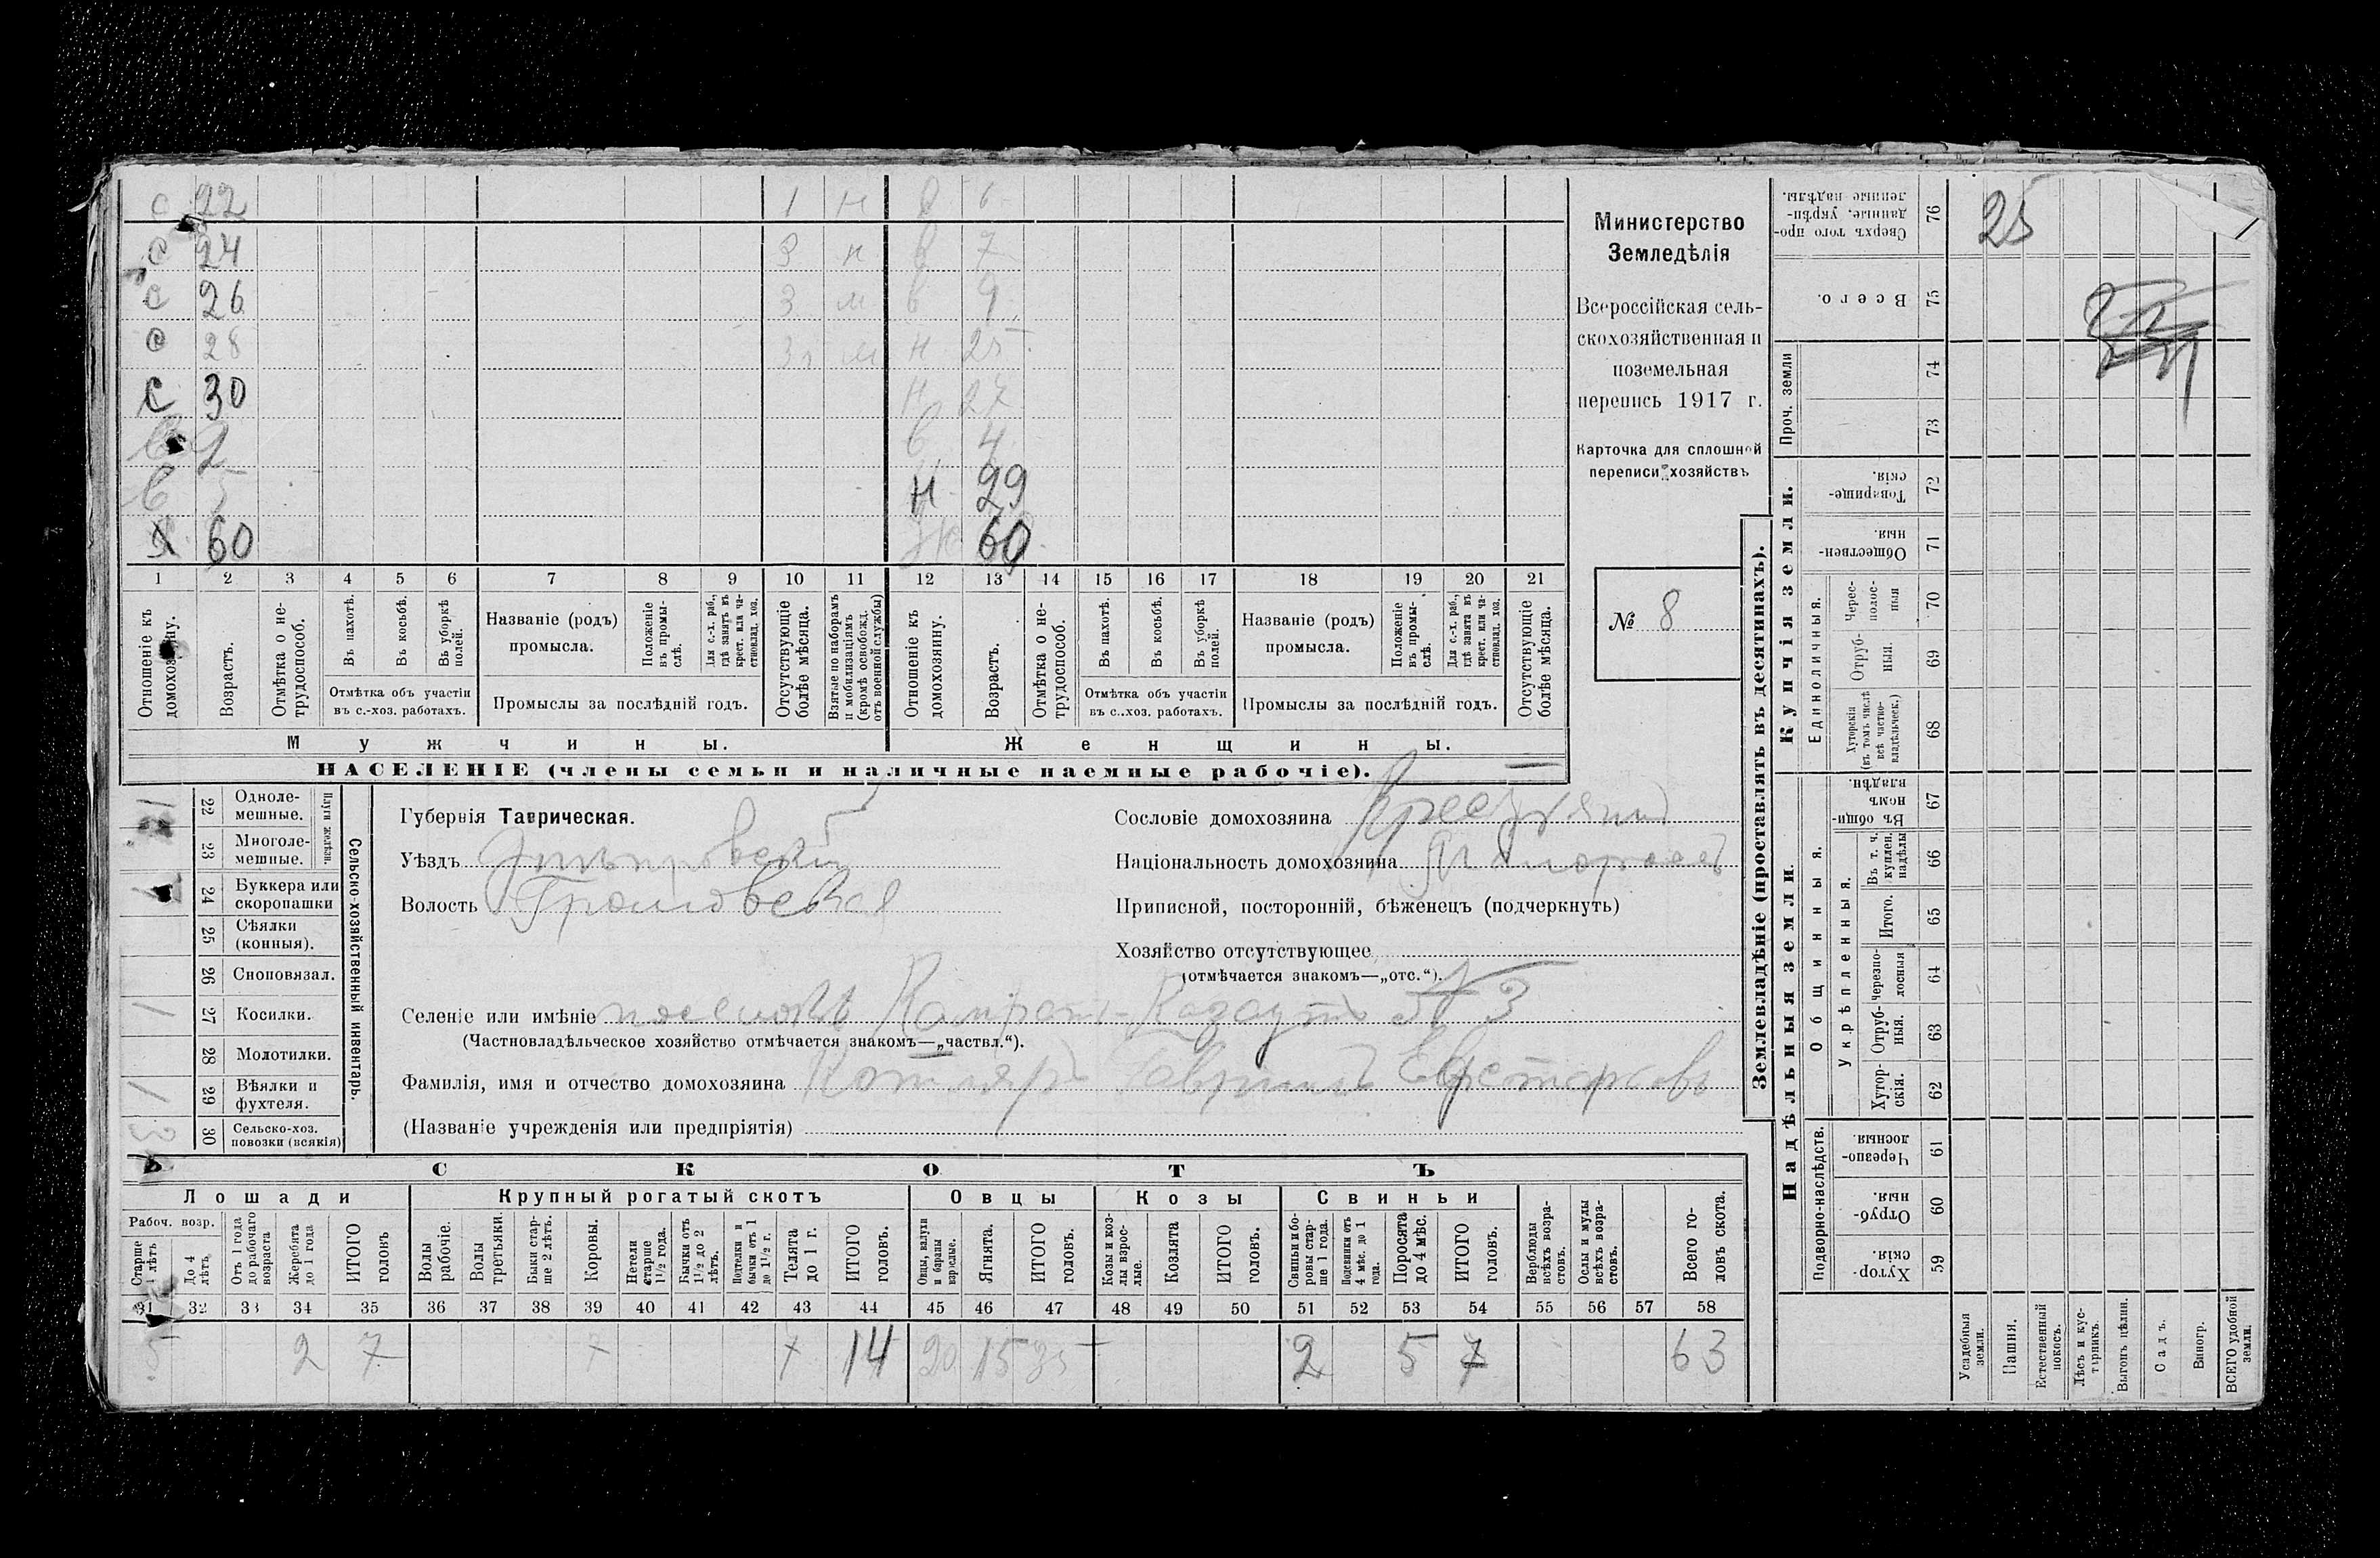 с 22 1 н в 6
с 24 3 н в 7
с 26 3 м в 9
с 28 3 м н 25
с 30 н 27
в 2 в 4
в 5 н 29
х 60 ж 60
1 2 3 4 5 6 7 8 9 10 11 12 13 14 15 16 17 18 19 20 21
Отношеніе къ домохозяину.
Возрастъ.
Отмѣтка о не-трудоспособ.
Въ пахотѣ.
Въ косьбѣ.
Въ уборкѣ полей.
Отмѣтка объ участіи
въ с.-хоз. работахъ.
Названіе (родъ)
промысла.
Положеніе въ промы-слѣ.
Для с.-х. раб., гдѣ занятъ въ крест. или ча-стновлад. хоз.
Промыслы за послѣдній годъ.
Отсутствующіе болѣе мѣсяца.
Взятые по наборамъ и мобилизаціямъ (кромѣ освобожд. отъ военной службы)
Отношеніе къ домохозяину.
Возрастъ.
Отмѣтка о не-трудоспособ.
Въ пахотѣ.
Въ косьбѣ.
Въ уборкѣ полей.
Отмѣтка объ участіи
въ с..хоз. работахъ.
Названіе (родъ)
промысла.
Положеніе въ промы-слѣ.
Для с.-х. раб., гдѣ занята въ крест. или ча-стновлад. хоз.
Промыслы за послѣдній годъ.
Отсутствующіе болѣе мѣсяца.
Мужчины.
Женщины.
НАСЕЛЕНІЕ (члены семьи и наличные наемные рабочіе).
Министерство
Земледѣлія
Всероссійская сель-
скохозяйственная и
поземельная
перепись 1917 г.
Карточка для сплошной
переписи хозяйствъ
№ 8
22 Одноле-мешные.
23 Многоле-мешные.
Плуги желѣзн.
24 Буккера или скоропашки
25 Сѣялки (конныя).
26 Сноповязал.
27 Косилки.
28 Молотилки.
29 Вѣялки и фухтеля.
30 Сельско-хоз. повозки (всякія)
1
1
1
3
Сельско-хозяйственный инвентарь.
Губернія Таврическая.
Уѣздъ Днѣпровскій
Волость Громовская
Сословіе домохозяина Крестьянинъ
Національность домохозяина
Приписной, посторонній, бѣженецъ (подчеркнуть)
Хозяйство отсутствующее
(отмѣчается знакомъ—„отс.“).
Селеніе или имѣніе поселокъ № 3
(Частновладѣльческое хозяйство отмѣчается знакомъ—„частвл.“).
Фамилія, имя и отчество домохозяина Котляръ Гавріилъ
(Названіе учрежденія или предпріятія)
СКОТЪ
Лошади
Крупный рогатый скотъ
Овцы
Козы
Свиньи
Рабоч. возр.
Старше 4 лѣтъ
До 4 лѣтъ
Отъ 1 года до рабочаго возраста
Жеребята до 1 года
ИТОГО головъ
Волы рабочіе.
Волы третьяки.
Быки стар-ше 2 лѣтъ.
Коровы.
Нетели старше 1½ года.
Бычки отъ 1½ до 2 лѣтъ.
Подтелки и бычки отъ 1 до 1½ г.
Телята до 1 г.
ИТОГО головъ.
Овцы, валухи и бараны взрослые.
Ягнята.
ИТОГО головъ.
Козы и коз-лы взрос-лые.
Козлята
ИТОГО головъ.
Свиньи и бо-ровы стар-ше 1 года.
Подсвинки отъ 4 мѣс. до 1 года.
Поросята до 4 мѣс.
ИТОГО головъ.
Верблюды всѣхъ возра-стовъ.
Ослы и мулы всѣхъ возра-стовъ.
Всего го-ловъ скота.
31 32 33 34 35 36 37 38 39 40 41 42 43 44 45 46 47 48 49 50 51 52 53 54 55 56 57 58
5 2 7 7 7 14 20 15 35 2 5 7 63
Землевладѣніе (проставлять въ десятинахъ).
Купчія земли.
Надѣльныя земли.
Сверхъ того про-данные, укрѣп-ленные надѣлы. 76
Всего. 75
Проч. земли 74 73
Товарище-скія. 72
Обществен-ныя. 71
Единоличныя.
Черес-полос-ныя 70
Отруб-ныя. 69
Хуторскія (въ томъ числѣ всѣ частно-владѣльческ.) 68
Общинныя.
Въ общи-номъ владѣн. 67
Укрѣпленныя.
Въ т. ч. куплен. надѣлы 66
Итого. 65
Черезпо-лосныя 64
Отруб-ныя. 63
Хутор-скія. 62
Подворно-наслѣдств.
Черезпо-лосныя 61
Отруб-ныя. 60
Хутор-скія. 59
Усадебныя земли.
Пашня.
Естественный покосъ.
Лѣсъ и кус-тарникъ.
Выгонъ цѣлин.
Садъ.
Виногр.
ВСЕГО удобной земли.
25